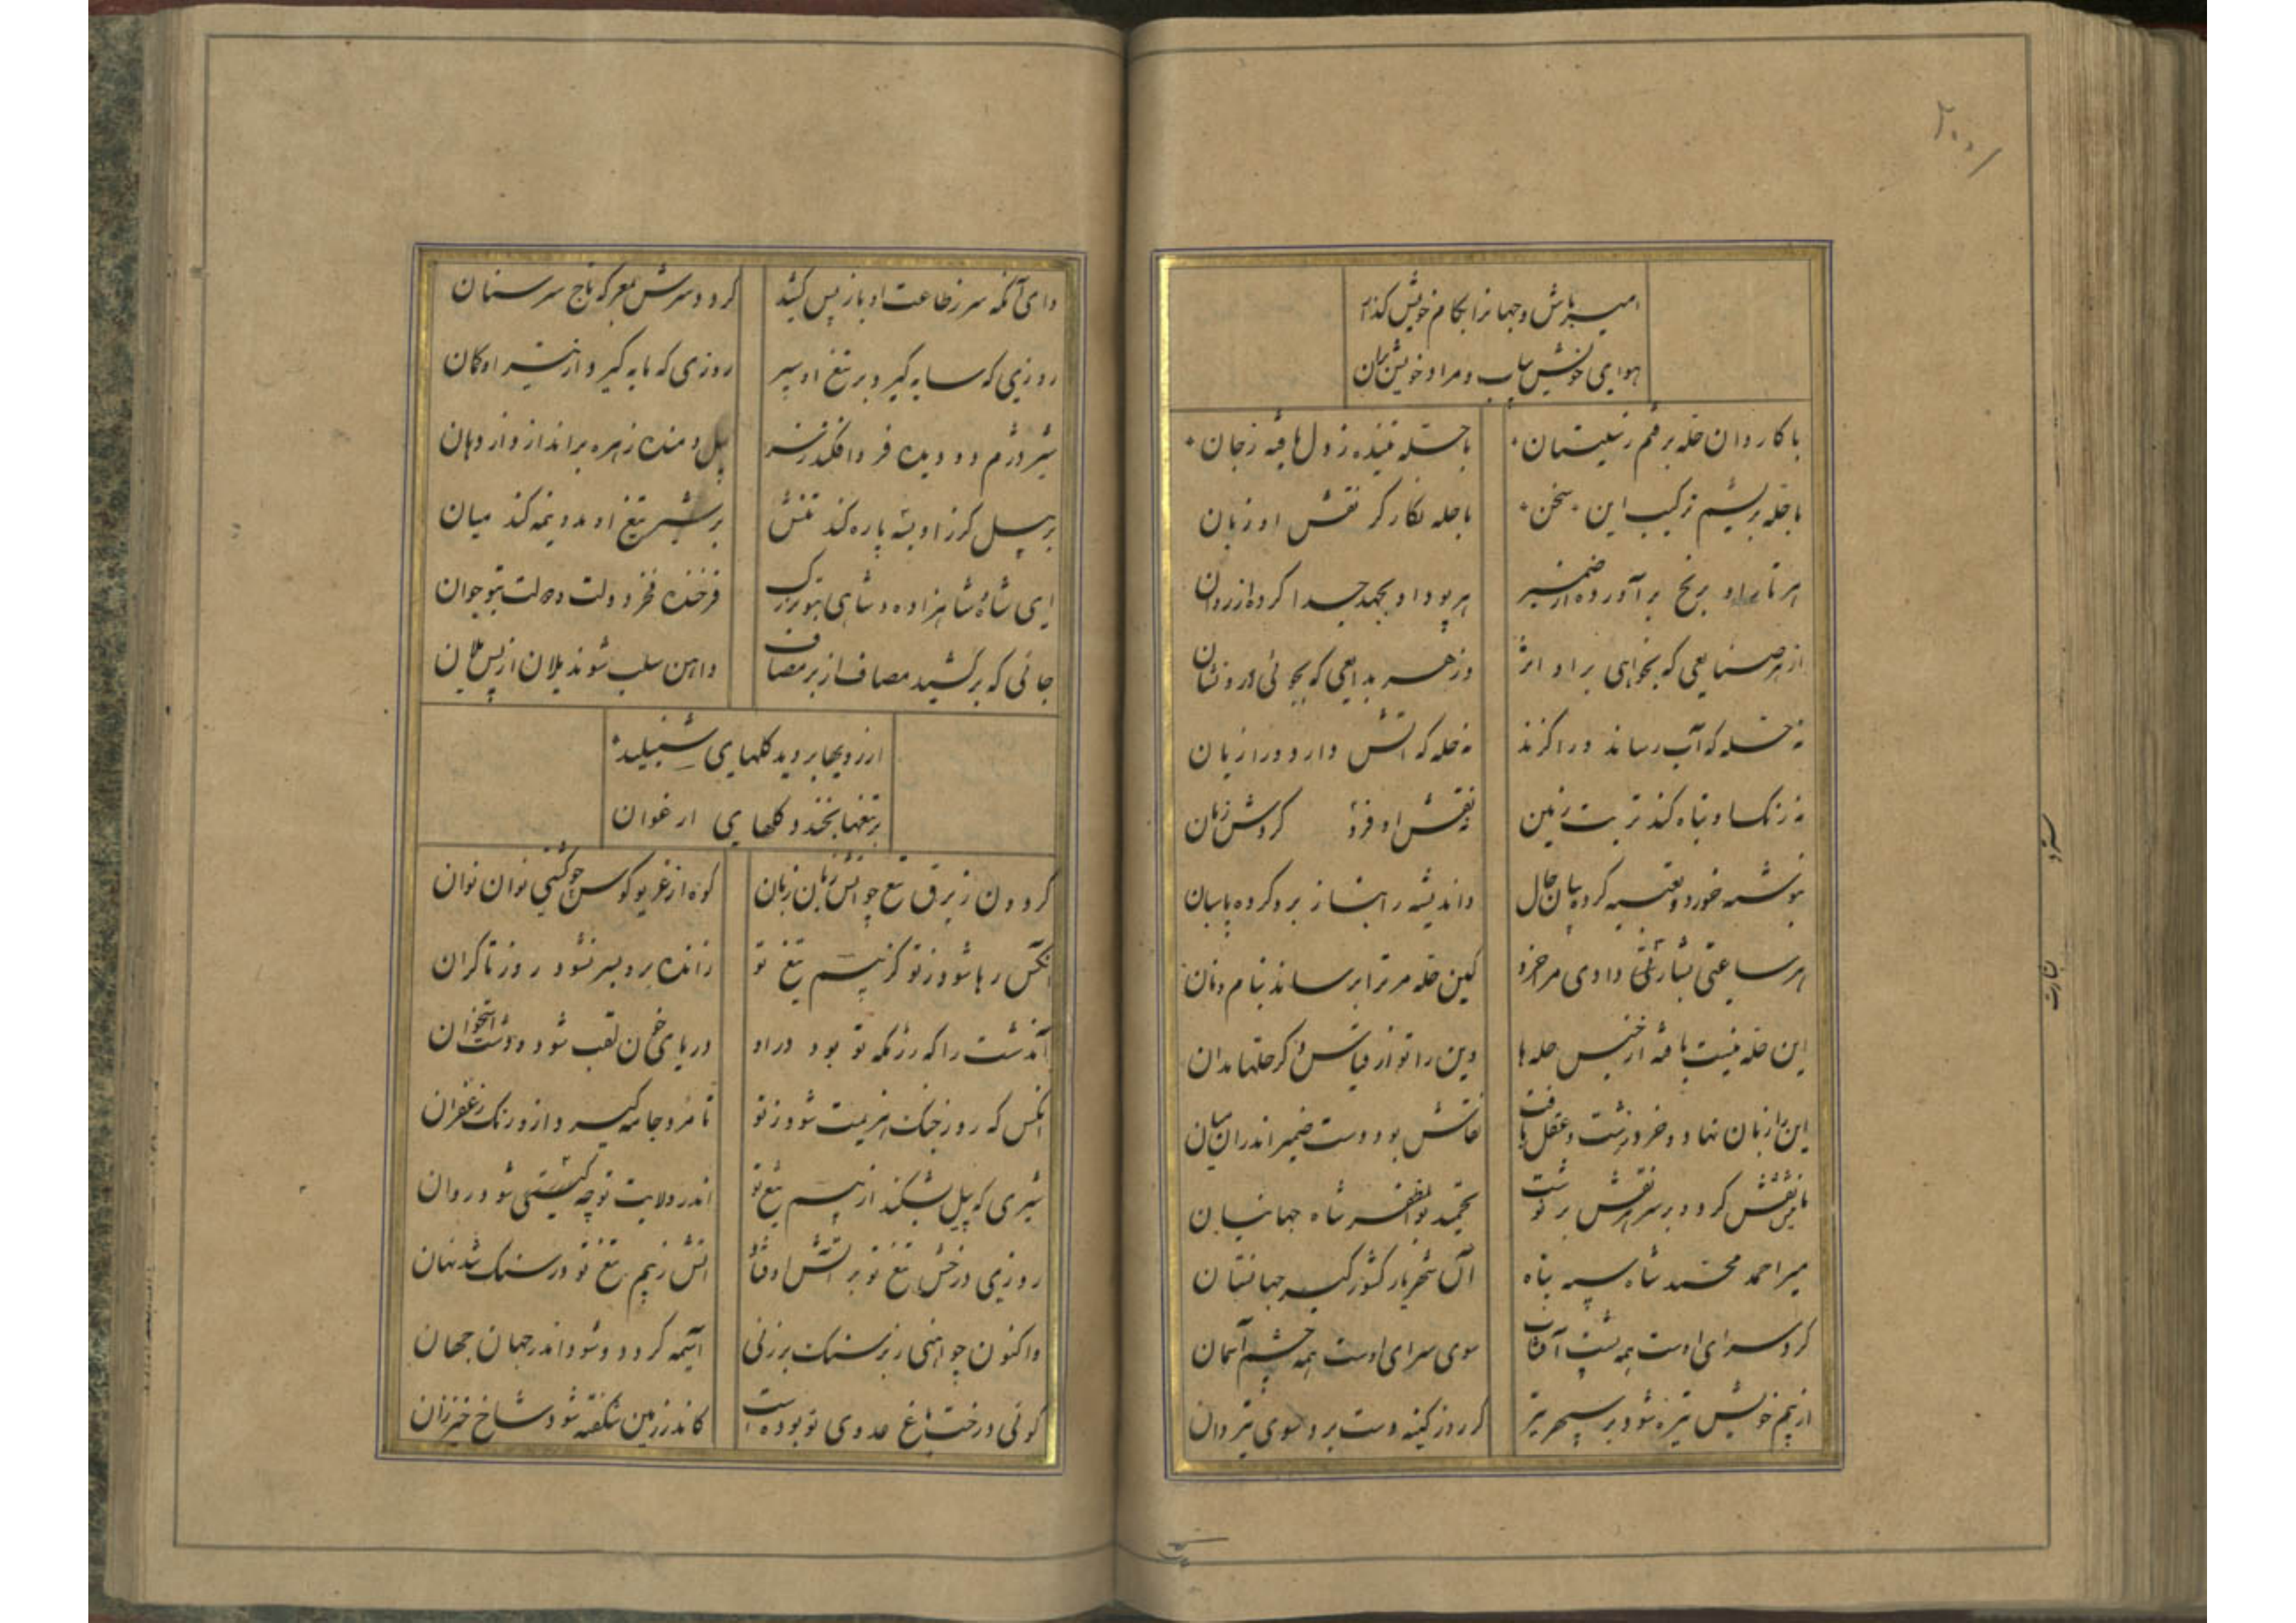 امیر باش و جهانرا بکام خویش گذار
هوای خویش بیاب و مراد خویش بران
با کاروان حله برفتم ز سیستان
با حله تنیده ز دل بافته ز جان
با حله بریشم ترکیب این سخن
با حله نگارگر نقش او زبان
هر تار او برنج برآورده از ضمیر
هر پود او بجهد جدا کرده از روان
از هر صنایعی که بخواهی بر او اثر
وز هر بدایعی که بجوئی درو نشان
نه حله که آب رساند ورا گزند
نه حله که آتش دارد ورا زیان
نه رنگ او تباه کند تربت زمین
نه نقش او فرو گردش زمان
بنوشته خورد و تعبیه کرده بیان حال
واندیشه را بناز برو کرده پاسبان
هر ساعتی بشارتی دادی مر خرد
کین حله مر ترا برساند بنام و نان
این حله نیست بافته از جنس حله ها
وین را تو از قیاس دگر حلها مدان
این را زبان نهاد و خرد رشت و عقل بافت
نقاش بود دست ضمیر اندران میان
تا نقش کرد و بر سر هر نقش بر نوشت
تحمید بوالمظفر شاه جهانیان
میر احمد محمد شاه سپه پناه
آن شهریار کشورگیر جهانستان
گرد سرای اوست همه پشت آفتاب
سوی سرای اوست همه چشم آسمان
از بیم خویش تیره شود بر سپهر تیر
گر روز کینه دست برد سوی تیردان
وای آنکه سر ز طاعت او باز پس کشد
گردد سرش بمعرکه تاج سر سنان
روزی که سایه گیرد بر تیغ او سپر
روزی که مایه گیرد از تیر او کمان
شیر دژم دو دیده فرو افکند ز سر
پیل دمنده زهره براندازد از دهان
بر پیل گرز او بسه پاره کند تنش
بر شیر تیغ او بدو نیمه کند میان
ای شاه و شاهزاده و شاهی بتو بزرگ
فرخنده فخر دولت و دولت بتو جوان
جائی که برکشید مصاف از بر مصاف
واهن سلب شوند یلان از پس یلان
از رویها بروید گلهای شنبلید
بر تیغها بخندد گلهای ارغوان
گردون ز برق تیغ چو آتش زبان زبان
کوه از غریو کوس چو کشتی نوان نوان
آنکس رها شود ز تو کز بیم تیغ تو
زانده برو بسر نشود روز تا کران
آندشت را که رزمگه تو بود در او
دریای خون لقب شود و دشت استخوان
آنکس که روز جنگ هزیمت شود ز تو
تا مرد جامه گیرد ازو رنگ زعفران
شیری که پیل بشکند از بیم تیغ تو
اندر ولایت تو چه کشتی شود روان
روزی درخش تیغ تو بر آتش اوفتاد
آتش ز بیم تیغ تو در سنگ شد نهان
واکنون چو آهنی ز بر سنگ برزنی
آسیمه گردد و شود اندر جهان جهان
گوئی درخت باغ عدوی تو بوده است
کاندر زمین شکفته شود شاخ خیزران